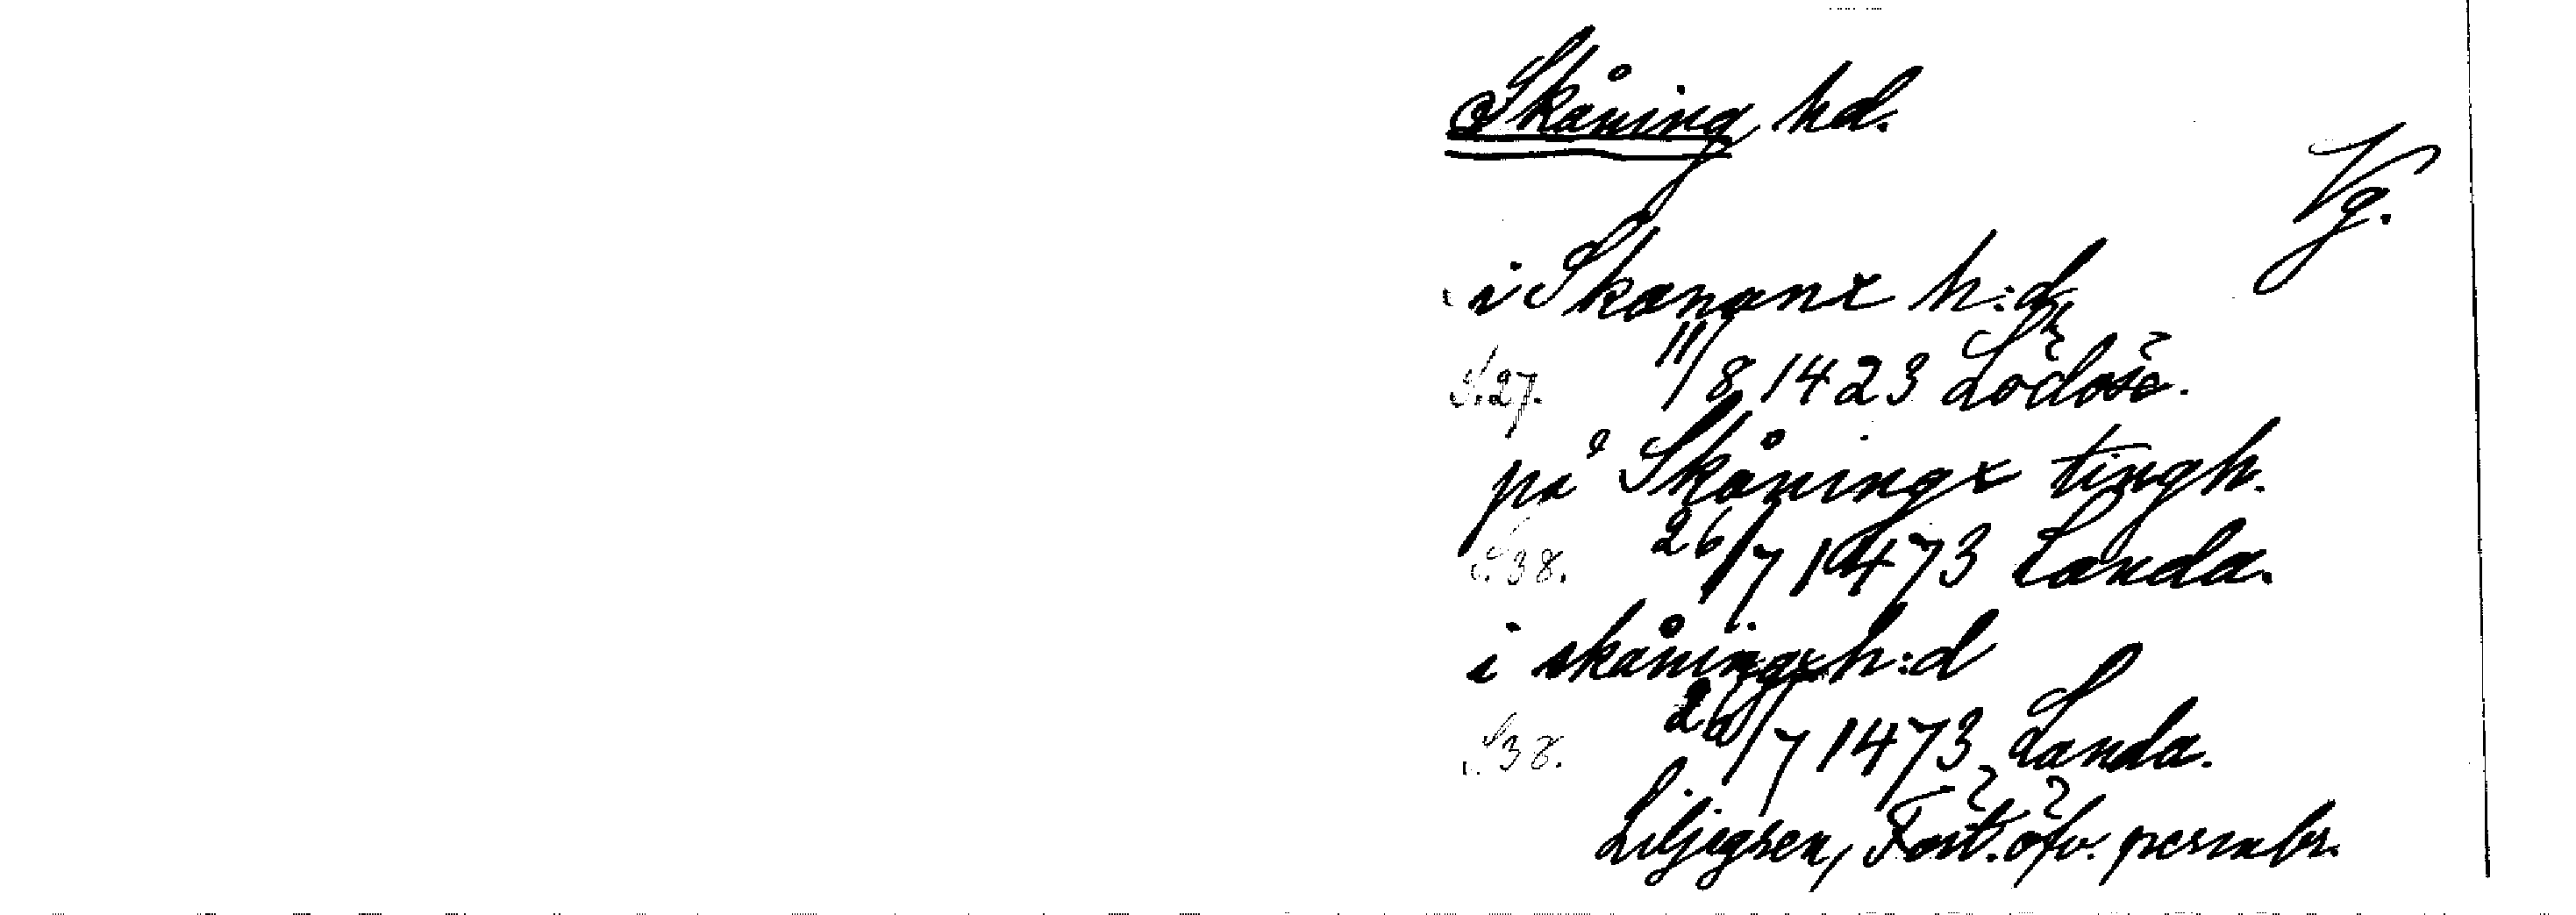 Skåning hd.
Vg.
i Skonanx h:d
S.27. 11/8 1423 Lödöse.
på Skåningx tingh.
S.38. 26/7 1473 Landa.
i skåningx h:d
S.38. 26/7 1473 Landa.
Liljegren, Fört. öfv. permbr.